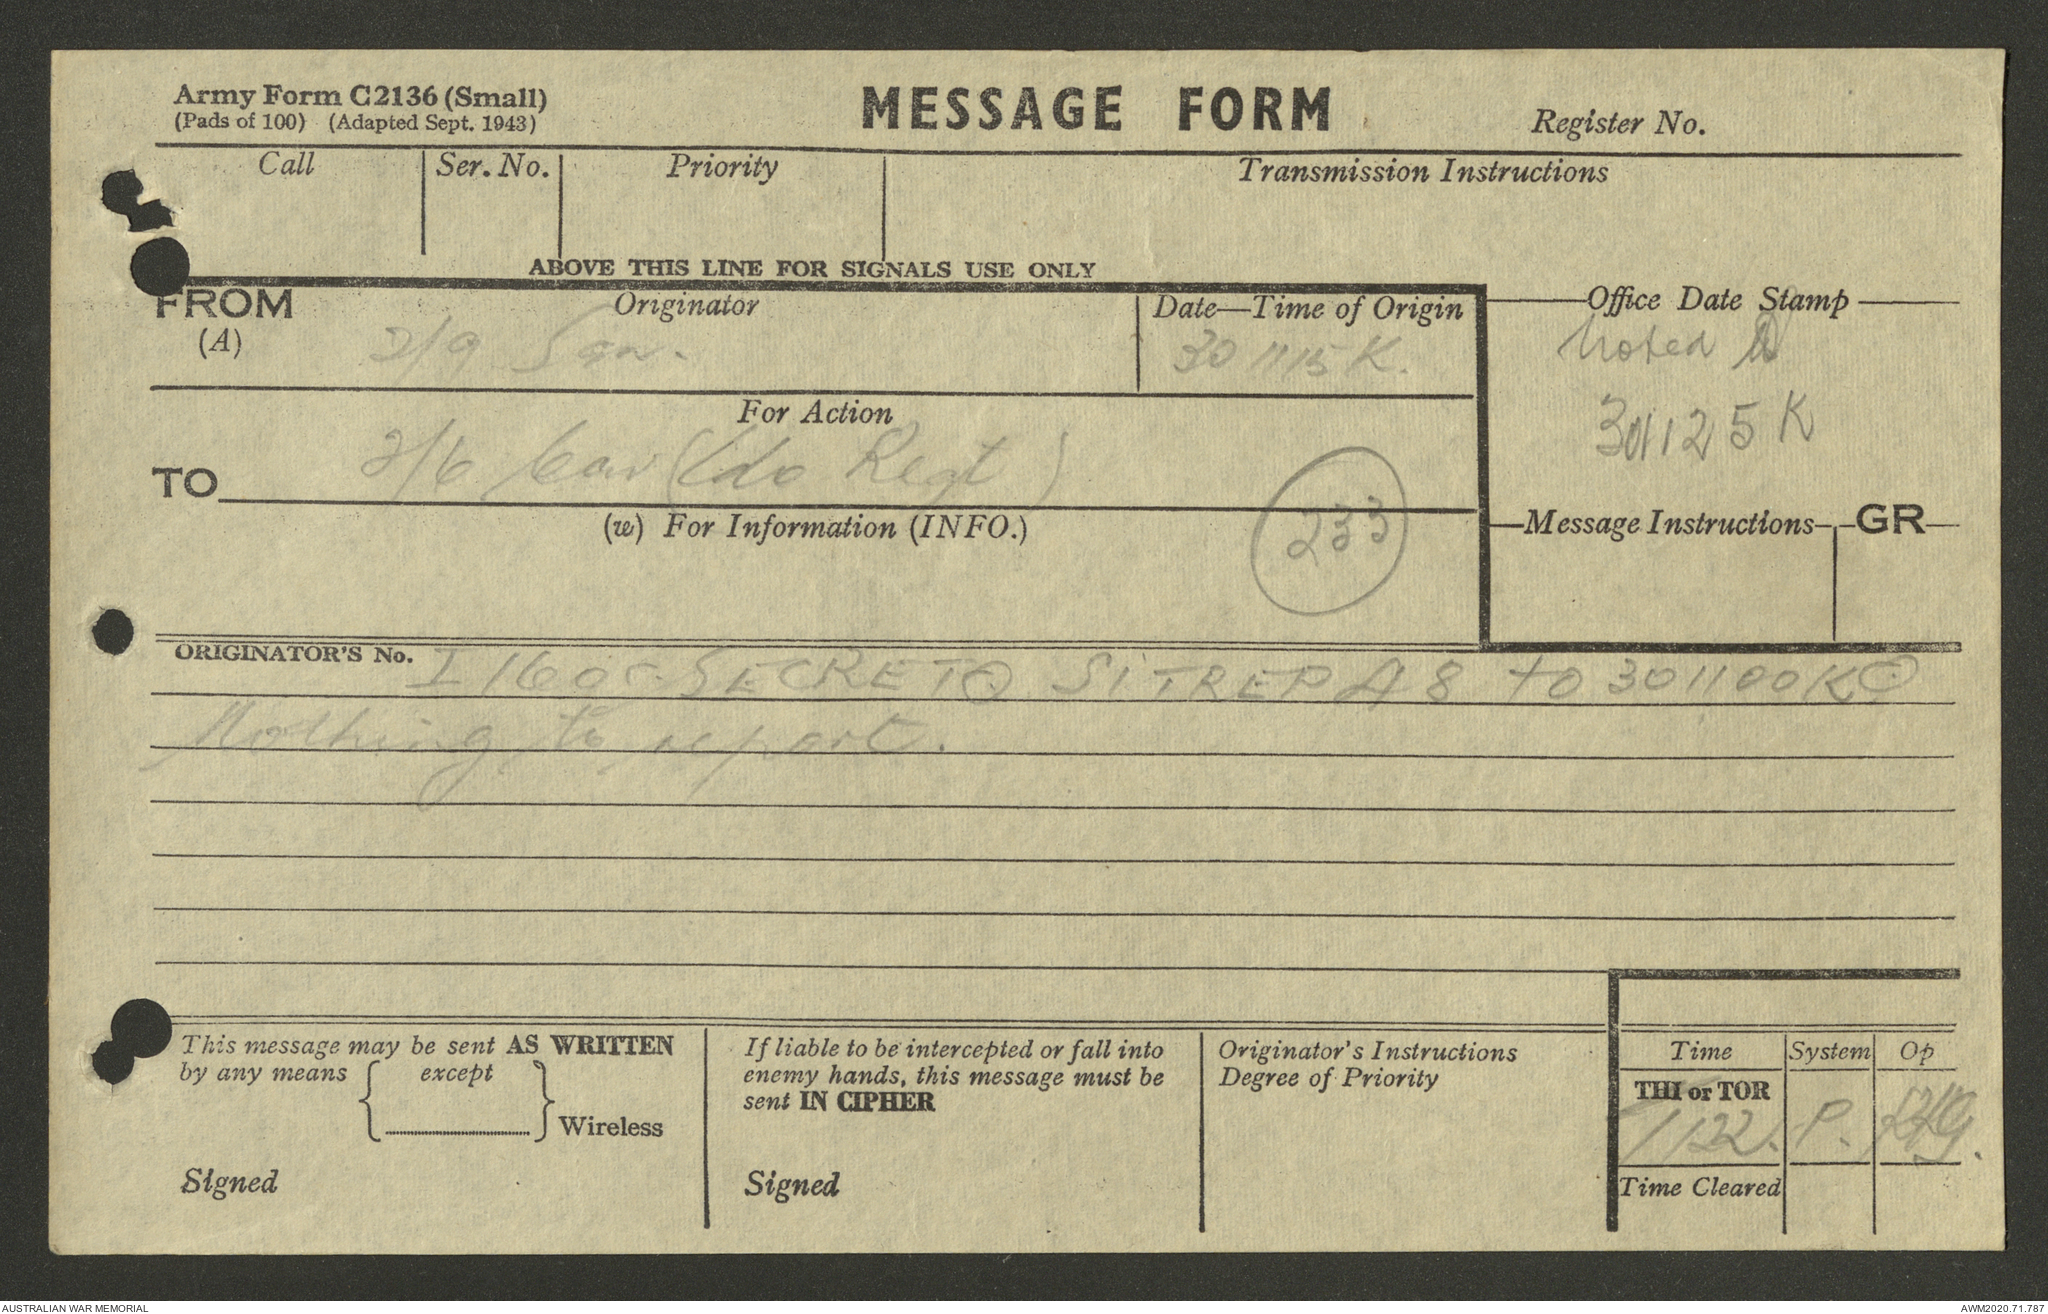 Army Form C2136 (Small)
(Pads of 100) (Adapted Sept. 1943)
MESSAGE FORM
Register No.
Call Ser. No. Priority Transmission Instructions
ABOVE THIS LINE FOR SIGNALS USE ONLY
FROM
(A)
Originator
2/9 Sqn.
Date—Time of Origin
301115K.
Office Date Stamp
Noted
301125K
For Action
TO
2/6 Cav (Cdo Regt)
(w) For Information (INFO.)
233
Message Instructions GR
ORIGINATOR'S No. I 160 SECRET O SITREP A8 TO 301100K O
Nothing to report.
This message may be sent AS WRITTEN
by any means except
Wireless
Signed
If liable to be intercepted or fall into
enemy hands, this message must be
sent IN CIPHER
Signed
Originator's Instructions
Degree of Priority
Time System Op
THI or TOR
1122. P.
Time Cleared
AUSTRALIAN WAR MEMORIAL
AWM2020.71.787